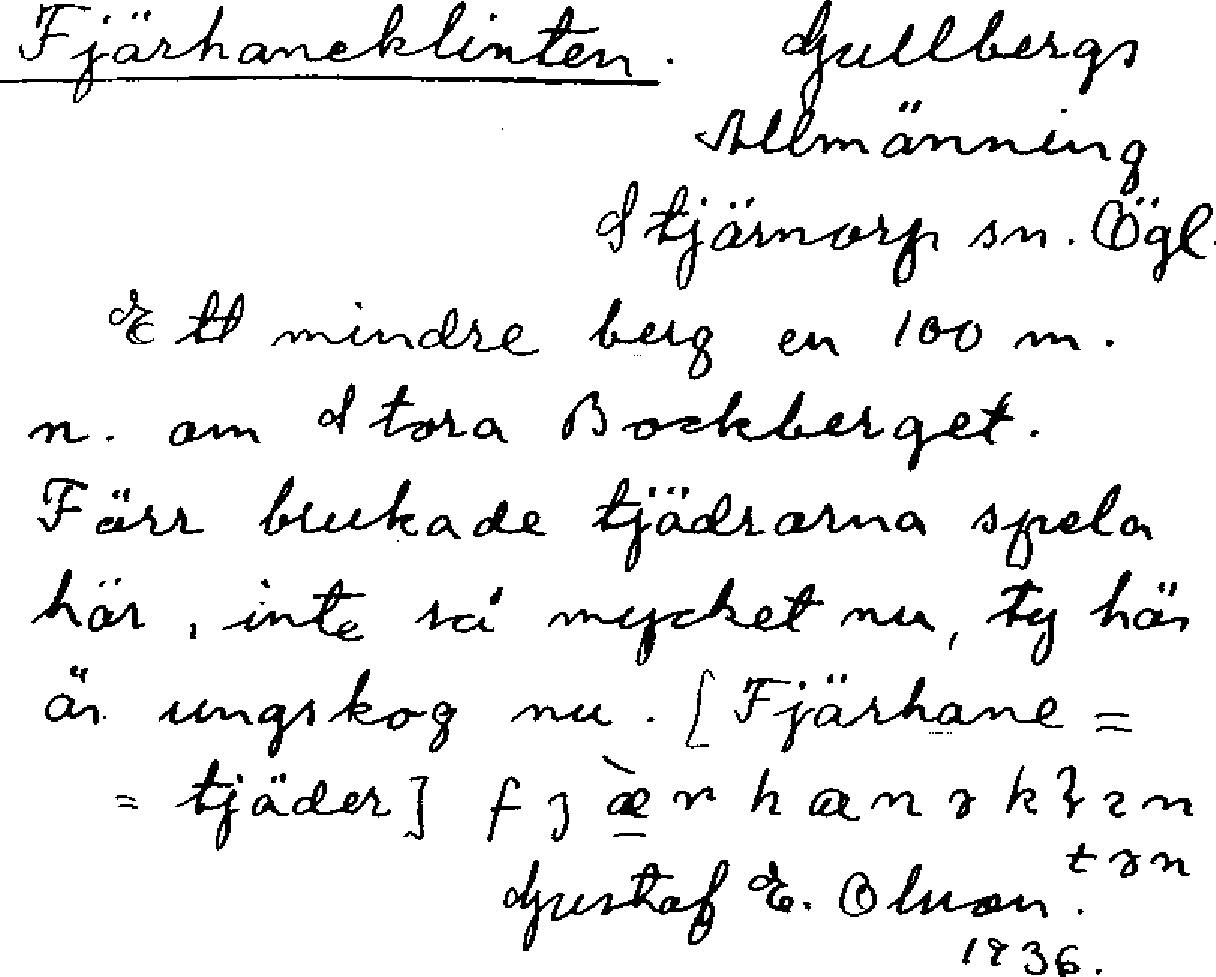 Fjärhaneklinten. Gullbergs
Allmänning
Stjärnorp sn. Ögl.
Ett mindre berg en 100 m.
n. om Stora Bockberget.
Färr brukade tjädrarna spela
här, inte så mycket nu, ty här
är ungskog nu. [Fjärhane =
= tjäder]
Gustaf E. Olson.
1936.